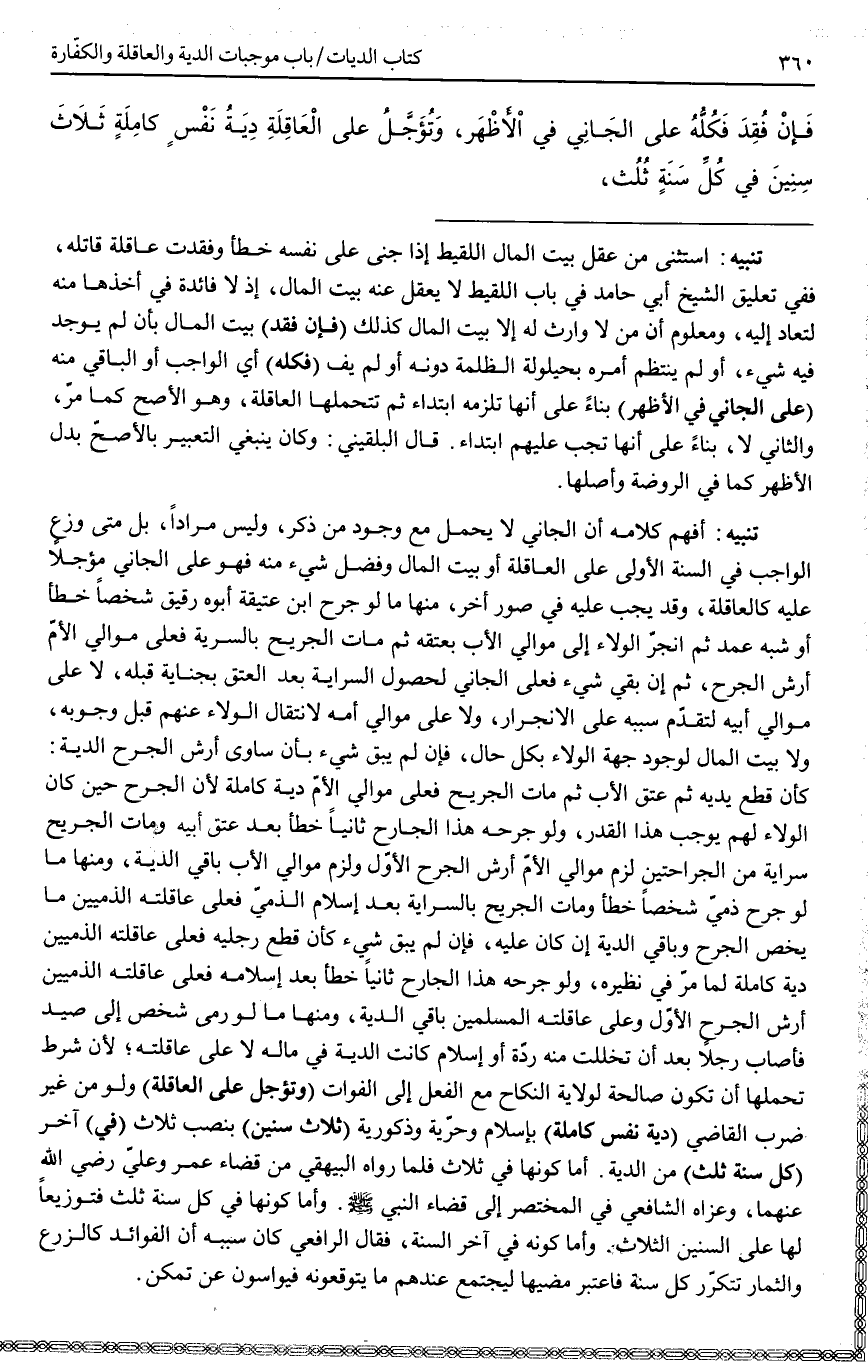 ٣٦٠
كتاب الديات/ باب موجبات الدية والعاقلة والكفّارة
فَإِنْ فُقِدَ فَكُلُّهُ على الجَانِي في الْأَظْهَر، وَتُؤَجَّلُ على الْعَاقِلَةِ دِيَةُ نَفْسٍ كامِلَةٍ ثَلَاثَ
سِنِينَ في كُلِّ سَنَةٍ ثُلُث،
تنبيه: استثنى من عقل بيت المال اللقيط إذا جنى على نفسه خطأ وفقدت عاقلة قاتله،
ففي تعليق الشيخ أبي حامد في باب اللقيط لا يعقل عنه بيت المال، إذ لا فائدة في أخذها منه
لتعاد إليه، ومعلوم أن من لا وارث له إلا بيت المال كذلك (فإن فقد) بيت المال بأن لم يوجد
فيه شيء، أو لم ينتظم أمره بحيلولة الظلمة دونه أو لم يف (فكله) أي الواجب أو الباقي منه
(على الجاني في الأظهر) بناءً على أنها تلزمه ابتداء ثم تتحملها العاقلة، وهو الأصح كما مرّ،
والثاني لا، بناءً على أنها تجب عليهم ابتداء. قال البلقيني: وكان ينبغي التعبير بالأصحّ بدل
الأظهر كما في الروضة وأصلها.
تنبيه: أفهم كلامه أن الجاني لا يحمل مع وجود من ذكر، وليس مراداً، بل متى وزع
الواجب في السنة الأولى على العاقلة أو بيت المال وفضل شيء منه فهو على الجاني مؤجلاً
عليه كالعاقلة، وقد يجب عليه في صور أخر، منها ما لو جرح ابن عتيقة أبوه رقيق شخصاً خطأ
أو شبه عمد ثم انجرّ الولاء إلى موالي الأب بعتقه ثم مات الجريح بالسرية فعلى موالي الأمّ
أرش الجرح، ثم إن بقي شيء فعلى الجاني لحصول السراية بعد العتق بجناية قبله، لا على
موالي أبيه لتقدّم سببه على الانجرار، ولا على موالي أمه لانتقال الولاء عنهم قبل وجوبه،
ولا بيت المال لوجود جهة الولاء بكل حال، فإن لم يبق شيء بأن ساوى أرش الجرح الدية:
كأن قطع يديه ثم عتق الأب ثم مات الجريح فعلى موالي الأمّ دية كاملة لأن الجرح حين كان
الولاء لهم يوجب هذا القدر، ولو جرحه هذا الجارح ثانياً خطأ بعد عتق أبيه ومات الجريح
سراية من الجراحتين لزم موالي الأمّ أرش الجرح الأوّل ولزم موالي الأب باقي الدية، ومنها ما
لو جرح ذميّ شخصاً خطأ ومات الجريح بالسراية بعد إسلام الذميّ فعلى عاقلته الذميين ما
يخص الجرح وباقي الدية إن كان عليه، فإن لم يبق شيء كأن قطع رجليه فعلى عاقلته الذميين
دية كاملة لما مرّ في نظيره، ولو جرحه هذا الجارح ثانياً خطأ بعد إسلامه فعلى عاقلته الذميين
أرش الجرح الأوّل وعلى عاقلته المسلمين باقي الدية، ومنها ما لو رمى شخص إلى صيد
فأصاب رجلاً بعد أن تخللت منه ردّة أو إسلام كانت الدية في ماله لا على عاقلته؛ لأن شرط
تحملها أن تكون صالحة لولاية النكاح مع الفعل إلى الفوات (وتؤجل على العاقلة) ولو من غير
ضرب القاضي (دية نفس كاملة) بإسلام وحرّية وذكورية (ثلاث سنين) بنصب ثلاث (في) آخر
(كل سنة ثلث) من الدية. أما كونها في ثلاث فلما رواه البيهقي من قضاء عمر وعليّ رضي الله
عنهما، وعزاه الشافعي في المختصر إلى قضاء النبي ﷺ. وأما كونها في كل سنة ثلث فتوزيعاً
لها على السنين الثلاث. وأما كونه في آخر السنة، فقال الرافعي كان سببه أن الفوائد كالزرع
والثمار تتكرّر كل سنة فاعتبر مضيها ليجتمع عندهم ما يتوقعونه فيواسون عن تمكن.